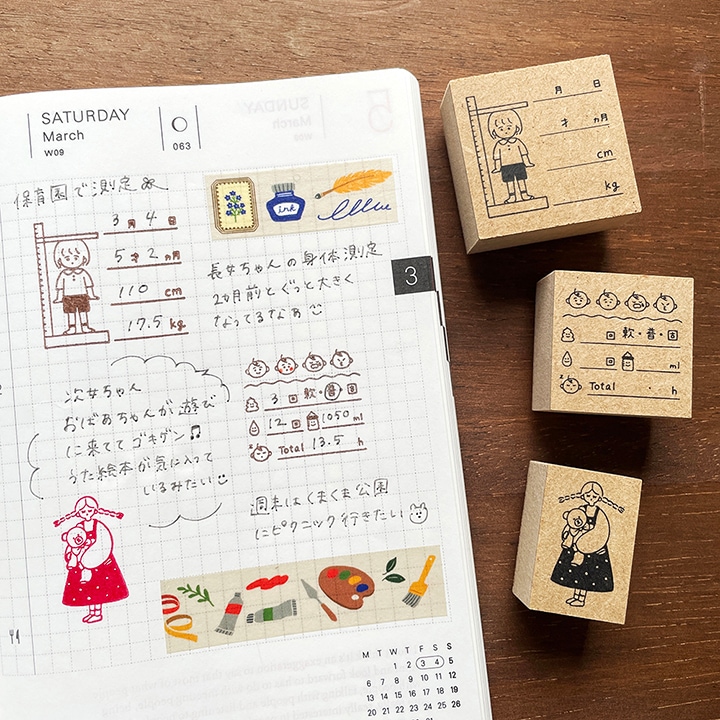 SATURDAY
March
W09
063
SUNDAY
March
W09
5
保育園で測定
3月 4日
5才 2ヵ月
110 cm
17.5 kg
ink
3
長女ちゃんの身体測定
2ヵ月前とぐっと大きく
なってるなぁ
次女ちゃん
おばあちゃんが遊び
に来ててゴキゲン♫
うた絵本が気に入って
いるみたい
3回 軟・普・固
12回 1050 ml
Total 13.5 h
週末はくまくま公園
にピクニック行きたい
M T W T F S S
1 2 3 4 5
6 7 8 9 10 11 12
13 14 15 16 17 18 19
20 21 22 23 24 25 26
月 日
才 ヵ月
cm
kg
回 軟・普・固
回 ml
Total . h